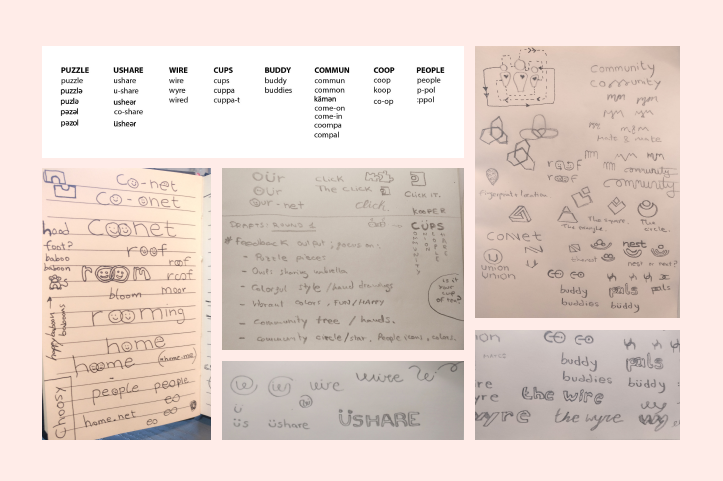 PUZZLE USHARE WIRE CUPS BUDDY COMMUN COOP PEOPLE
puzzle ushare wire cups buddy commun coop people
puzzlə u-share wyre cuppa buddies common koop p-pol
puzlə usheər wired cuppa-t kämən co-op :ppol
pəzəl co-share come-on
pəzol üsheər come-in
coompa
compal
Co-net
Co-onet
Coonet
hood
foot?
baboo
baboon
roof
roof
room
roof
bloom
moor
rooming
happy baboon
home
hoome
home.me
Choosy
people people
home.net
OÜr click
Our The click
Our-net click.
CLICK IT.
KOOPER
DONETS: ROUND 1
CUPS
# Feedback output; focus on:
- Puzzle pieces
- Owls sharing umbrella
- Colorful style / hand drawings
- Vibrant colors, FUN/HAPPY
- community tree / hands.
- community circle/star, People icons, colors.
is it
your
cup
of tea?
wire wire
ü
üs üshare ÜSHARE
Community
community
roof
roof
community
community
fingerprints location
The triangle.
The square.
The circle.
CoNet
U
union
union
nest
nest or nest?
buddy pals pals
buddies büddy
ion
buddy pals
buddies büddy
re the wire
yre
wyre the wyre wy